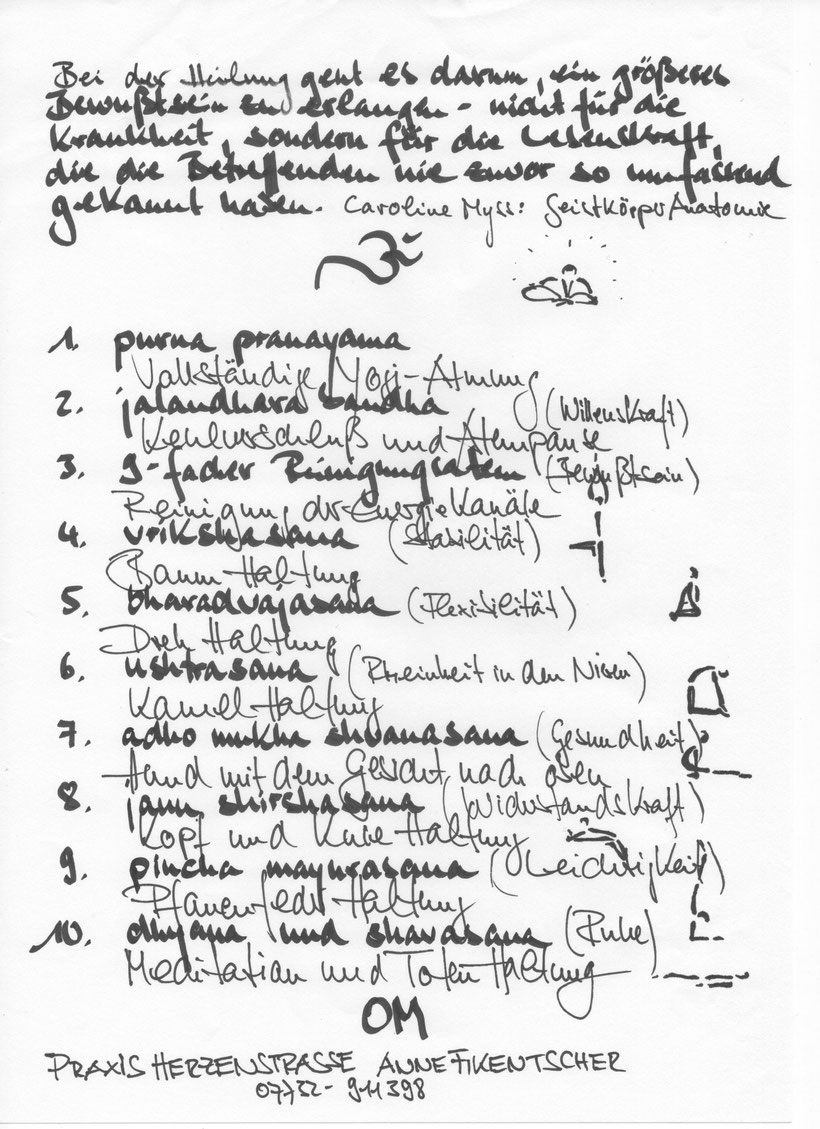 Bei der Heilung geht es darum, ein größeres
Bewußtsein zu erlangen - nicht für die
Krankheit, sondern für die Lebenskraft,
die die Betreffenden nie zuvor so umfassend
gekannt haben. Caroline Myss: Geistkörper Anatomie
ॐ
1. purna pranayama
Vollständige Yogi-Atmung
2. jalandhara bandha (Willenskraft)
Kehlverschluß und Atempause
3. 9-facher Reinigungsatem (Bewußtsein)
Reinigung der Energiekanäle
4. vrikshasana (Stabilität)
Baum Haltung
5. bharadvajasana (Flexibilität)
Dreh Haltung
6. ushtrasana (in den Nieren)
Kamel-Haltung
7. adho mukha shvanasana (Gesundheit)
Hund mit dem Gesicht nach oben
8. janu shirshasana (Widerstandskraft)
Kopf und Knie Haltung
9. pincha mayurasana (Leichtigkeit)
Pfauenfeder Haltung
10. dhyana und shavasana (Ruhe)
Meditation und Toten Haltung
OM
PRAXIS HERZENSTRASSE ANNE FIKENTSCHER
07732-911398